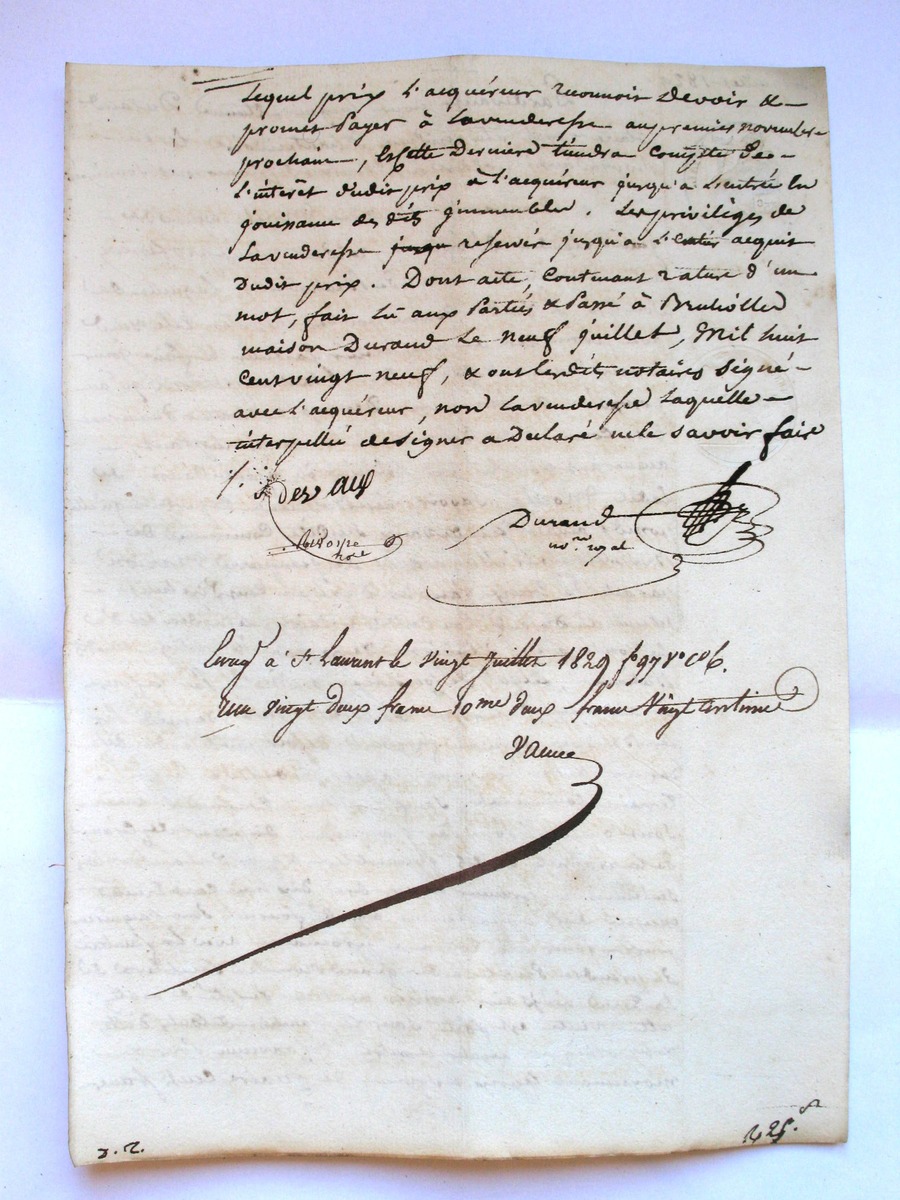 Lequel prix l'acquéreur reconnoit devoir &
promet payer à la venderesse au premier novembre
prochain, & cette dernière tiendra compte de
l'intérêt dudit prix à l'acquéreur jusqu'à l'entrée en
jouissance des dits immeubles. Les privilèges de
la venderesse jusqu reservés jusqu'à l'entier acquit
dudit prix. Dont acte, contenant rature d'un
mot, fait lu aux parties & passé à
maison Durand le neuf juillet, mil huit
cent vingt neuf, & ont lesdits notaires signé
avec l'acquéreur, non la venderesse laquelle
interpellée de signer a declaré ne le savoir faire
Durand
no.re royal
Enreg. à St Laurent le vingt juillet 1829 fo 97 Vo Co 6.
Reçu vingt deux francs 10me deux francs vingt centimes